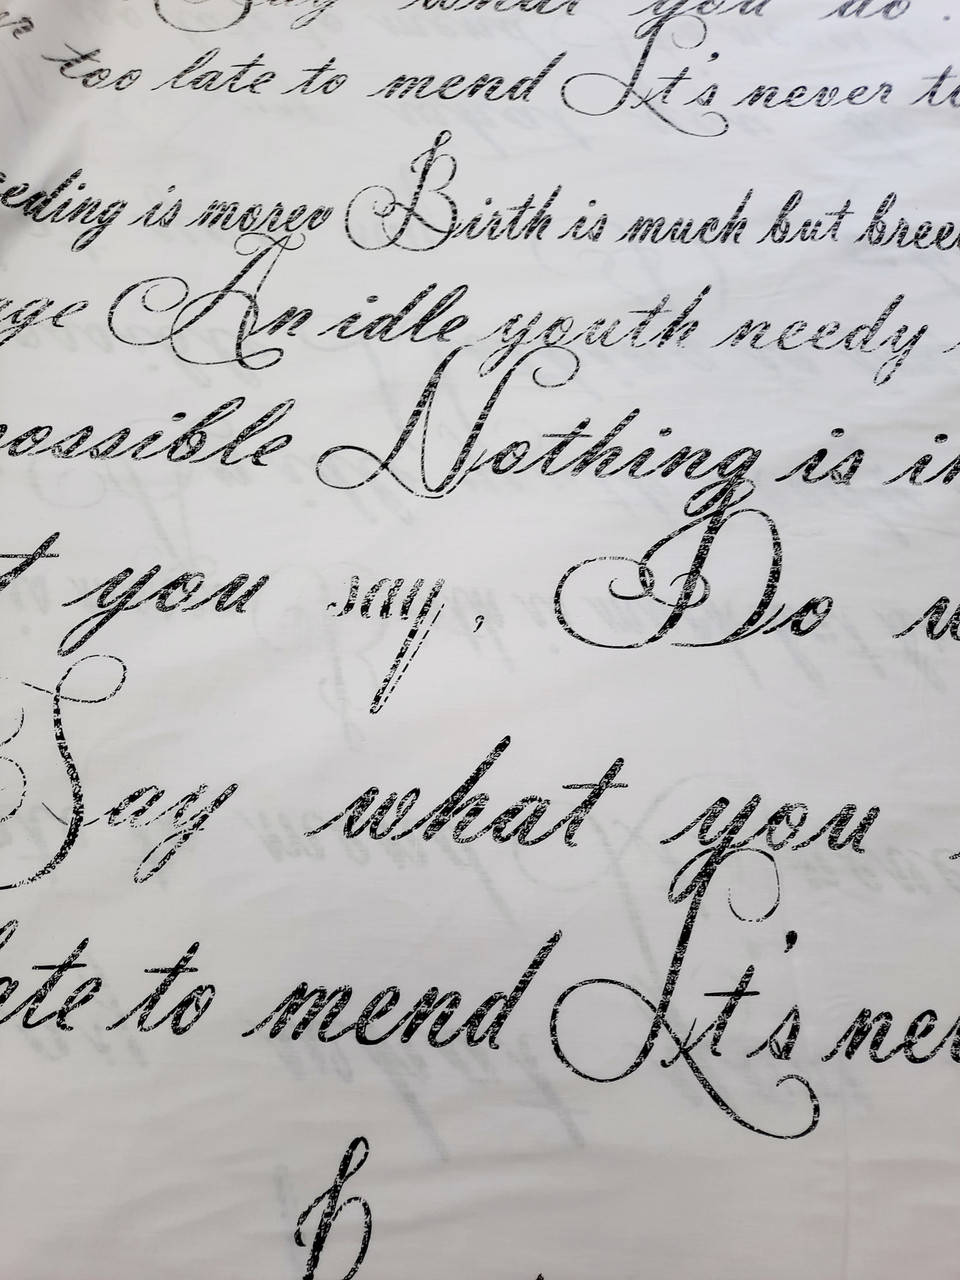 Say what you do.
too late to mend It's never to
eding is morev Birth is much but bree
ge An idle youth needy
possible Nothing is in
t you say, Do w
Say what you
ate to mend It's nev